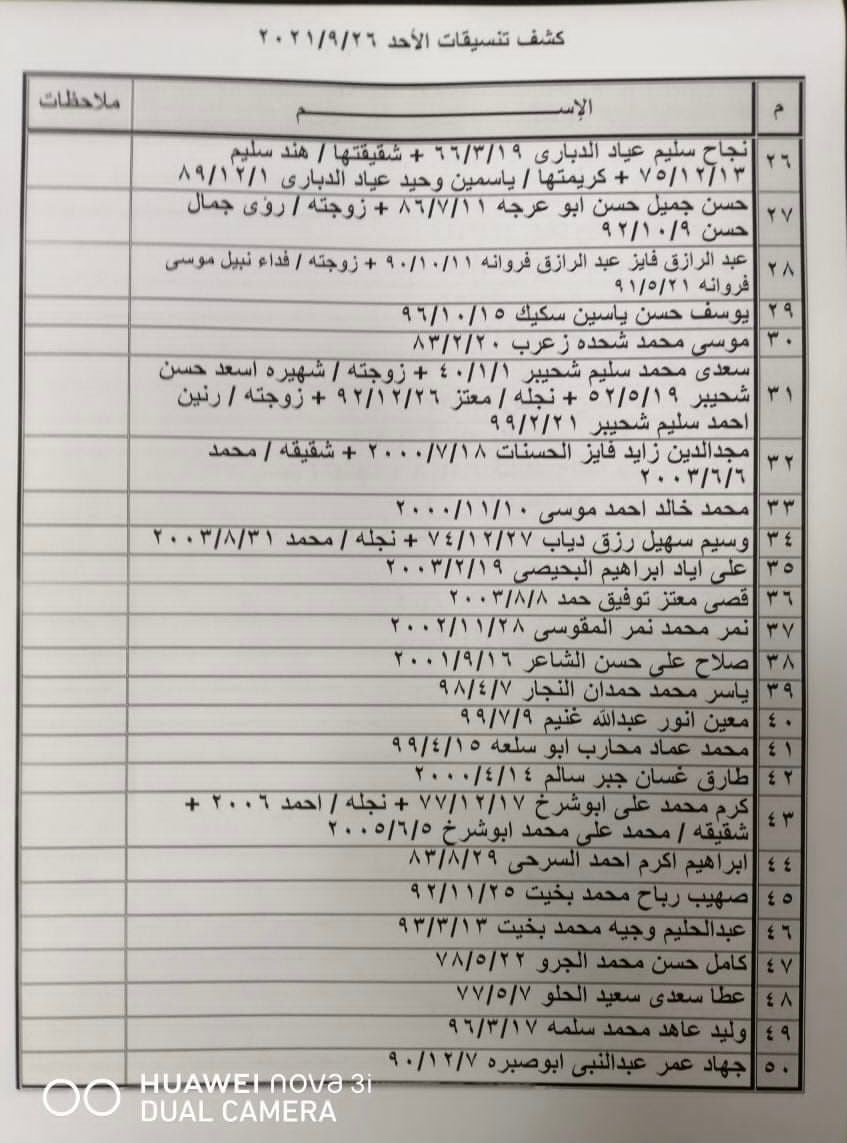 كشف تنسيقات الأحد ٢٠٢١/٩/٢٦
م الإســـــــــــــم ملاحظات
٢٦ نجاح سليم عياد الدبارى ٦٦/٣/١٩ + شقيقتها / هند سليم
٧٥/١٢/١٣ + كريمتها / ياسمين وحيد عياد الدبارى ٨٩/١٢/١
٢٧ حسن جميل حسن ابو عرجه ٨٦/٧/١١ + زوجته / رؤى جمال
حسن ٩٢/١٠/٩
٢٨ عبد الرازق فايز عبد الرازق فروانه ٩٠/١٠/١١ + زوجته / فداء نبيل موسى
فروانه ٩١/٥/٢١
٢٩ يوسف حسن ياسين سكيك ٩٦/١٠/١٥
٣٠ موسى محمد شحده زعرب ٨٣/٢/٢٠
٣١ سعدى محمد سليم شحيبر ٤٠/١/١ + زوجته / شهيره اسعد حسن
شحيبر ٥٢/٥/١٩ + نجله / معتز ٩٢/١٢/٢٦ + زوجته / رنين
احمد سليم شحيبر ٩٩/٢/٢١
٣٢ مجدالدين زايد فايز الحسنات ٢٠٠٠/٧/١٨ + شقيقه / محمد
٢٠٠٣/٦/٦
٣٣ محمد خالد احمد موسى ٢٠٠٠/١١/١٠
٣٤ وسيم سهيل رزق دياب ٧٤/١٢/٢٧ + نجله / محمد ٢٠٠٣/٨/٣١
٣٥ على اياد ابراهيم البحيصى ٢٠٠٣/٢/١٩
٣٦ قصى معتز توفيق حمد ٢٠٠٣/٨/٨
٣٧ نمر محمد نمر المقوسى ٢٠٠٢/١١/٢٨
٣٨ صلاح على حسن الشاعر ٢٠٠١/٩/١٦
٣٩ ياسر محمد حمدان النجار ٩٨/٤/٧
٤٠ معين انور عبدالله غنيم ٩٩/٧/٩
٤١ محمد عماد محارب ابو سلعه ٩٩/٤/١٥
٤٢ طارق غسان جبر سالم ٢٠٠٠/٤/١٤
٤٣ كرم محمد على ابوشرخ ٧٧/١٢/١٧ + نجله / احمد ٢٠٠٦ +
شقيقه / محمد على محمد ابوشرخ ٢٠٠٥/٦/٥
٤٤ ابراهيم اكرم احمد السرحى ٨٣/٨/٢٩
٤٥ صهيب رباح محمد بخيت ٩٢/١١/٢٥
٤٦ عبدالحليم وجيه محمد بخيت ٩٣/٣/١٣
٤٧ كامل حسن محمد الجرو ٧٨/٥/٢٢
٤٨ عطا سعدى سعيد الحلو ٧٧/٥/٧
٤٩ وليد عاهد محمد سلمه ٩٦/٣/١٧
٥٠ جهاد عمر عبدالنبى ابوصبره ٩٠/١٢/٧
HUAWEI nova 3i
DUAL CAMERA